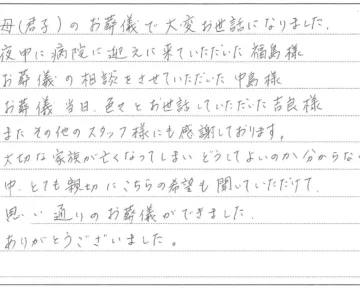 母(君子)のお葬儀で大変お世話になりました.
夜中に病院に迎えに来ていただいた福島様
お葬儀の相談をさせていただいた中島様
お葬儀当日.色々とお世話していただいた吉良様
またその他のスタッフ様にも感謝しております。
大切な家族が亡くなってしまいどうしてよいのか分からな
中.とても親切にこちらの希望も聞いていただけて.
思い通りのお葬儀ができました.
ありがとうございました。